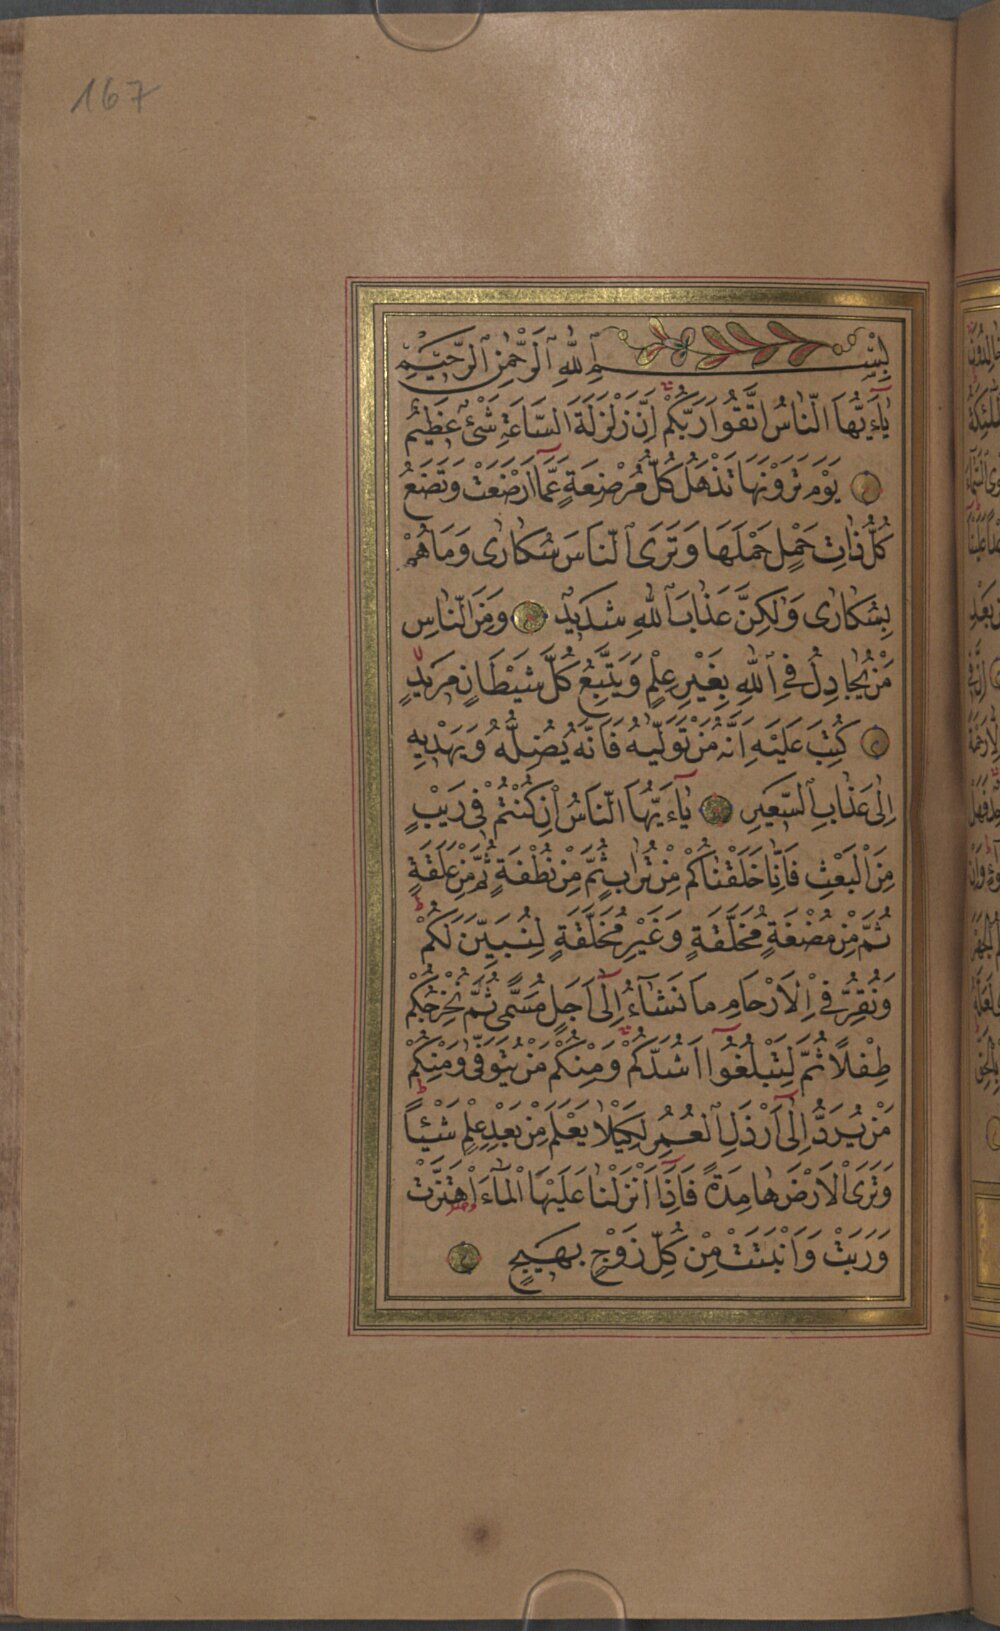 167
بِسْــــمِ اللّٰهِ الرَّحْمٰنِ الرَّحِيمِ
يَٓا ءَيُّهَا النَّاسُ اتَّقُوا رَبَّكُمْ اِنَّ زَلْزَلَةَ السَّاعَةِ شَيْئٌ عَظِيمٌ
يَوْمَ تَرَوْنَهَا تَذْهَلُ كُلُّ مُرْضِعَةٍ عَمَّٓا اَرْضَعَتْ وَتَضَعُ
كُلُّ ذَاتِ حَمْلٍ حَمْلَهَا وَتَرَى النَّاسَ سُكَارٰى وَمَا هُمْ
بِسُكَارٰى وَلٰكِنَّ عَذَابَ اللّٰهِ شَدِيدٌ وَمِنَ النَّاسِ
مَنْ يُجَادِلُ فِي اللّٰهِ بِغَيْرِ عِلْمٍ وَيَتَّبِعُ كُلَّ شَيْطَانٍ مَرِيدٍ
كُتِبَ عَلَيْهِ اَنَّهُ مَنْ تَوَلَّيهُ فَاَنَّهُ يُضِلُّهُ وَيَهْدِيهِ
اِلٰى عَذَابِ السَّعِيرِ يَٓا ءَيُّهَا النَّاسُ اِنْ كُنْتُمْ فِى رَيْبٍ
مِنَ الْبَعْثِ فَاِنَّا خَلَقْنَاكُمْ مِنْ تُرَابٍ ثُمَّ مِنْ نُطْفَةٍ ثُمَّ مِنْ عَلَقَةٍ
ثُمَّ مِنْ مُضْغَةٍ مُخَلَّقَةٍ وَغَيْرِ مُخَلَّقَةٍ لِنُبَيِّنَ لَكُمْ
وَنُقِرُّ فِي الْاَرْحَامِ مَا نَشَٓاءُ اِلٰٓى اَجَلٍ مُسَمًّى ثُمَّ نُخْرِجُكُمْ
طِفْلًا ثُمَّ لِتَبْلُغُٓوا اَشُدَّكُمْ وَمِنْكُمْ مَنْ يُتَوَفّٰى وَمِنْكُمْ
مَنْ يُرَدُّ اِلٰٓى اَرْذَلِ الْعُمُرِ لِكَيْلَا يَعْلَمَ مِنْ بَعْدِ عِلْمٍ شَيْـًٔا
وَتَرَى الْاَرْضَ هَامِدَةً فَاِذَٓا اَنْزَلْنَا عَلَيْهَا الْمَٓاءَ اهْتَزَّتْ
وَرَبَتْ وَاَنْبَتَتْ مِنْ كُلِّ زَوْجٍ بَهِيجٍ